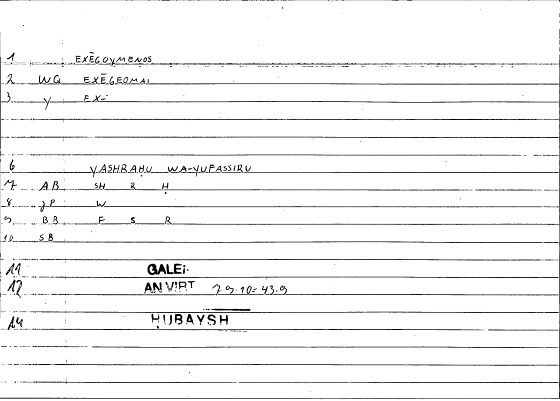 1 EXĒGOYMENOS
2 WQ EXĒGEOMAI
3 Y EX-
6 YASHRAḤU WA-YUFASSIRU
7 AB SH R Ḥ
8 JP W
9 BB F S R
10 SB
11 GALEI
12 AN VIRT 79.10=43.9
14 ḤUBAYSH